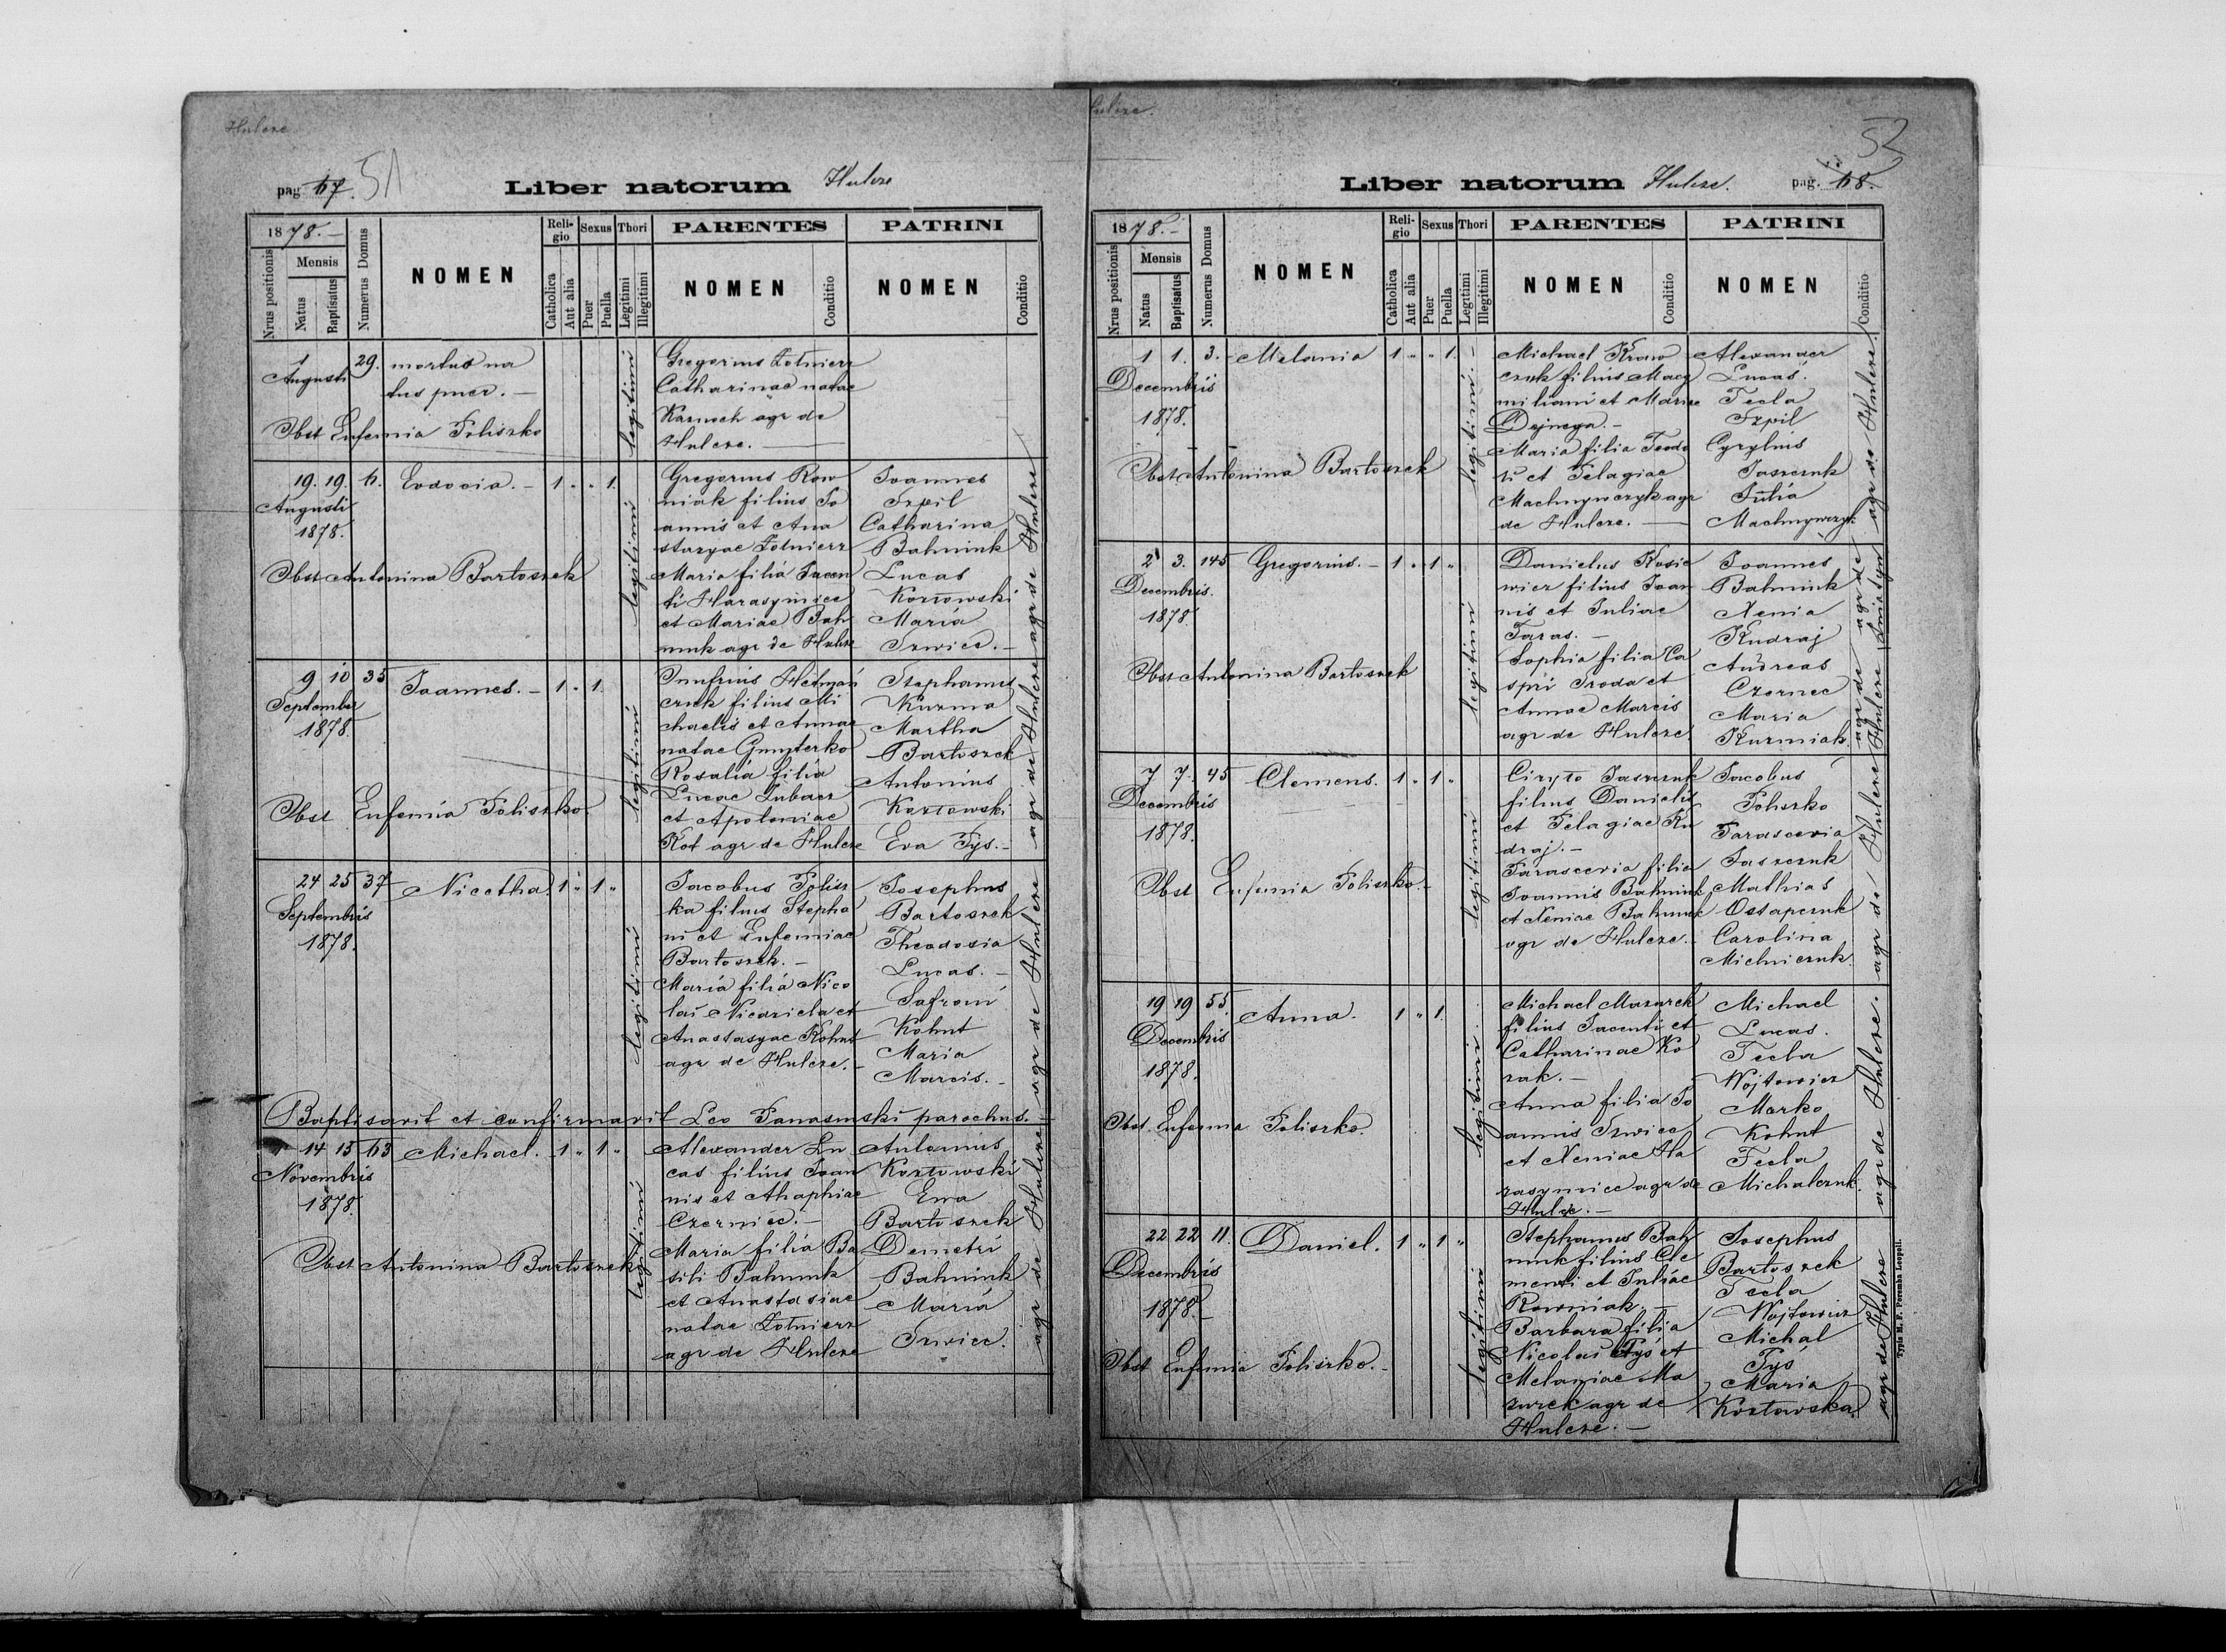 Hulcze
pag. 67. 51
Liber natorum Hulcze
1878.-
Nrus positionis
Mensis
Natus
Baptisatus
Numerus Domus
NOMEN
Religio
Catholica
Aut alia
Sexus
Puer
Puella
Thori
Legitimi
Illegitimi
PARENTES
NOMEN
Conditio
PATRINI
NOMEN
Conditio
1 29. mortus na
Augusti tus puer. -
Obst Eufemia Poliszko
legitimi
Gregorius Żołnierz
Catharinae natae
Karnoch agr de
Hulcze. -
19. 19. 6. Eudocia. - 1 " " 1.
Augusti
1878.
Obst Antonina Bartoszek
legitimi
Gregorius Row
niak filius Jo
annis et Ana
stazyae Żołnierz
Maria filia Jacen
ti Harasymiec
et Mariae Bah
niuk agr de Hulcze
Joannes
Szpil
Catharina
Bahniuk
Lucas
Kozłowski
Maria
Szwiec. -
agr de Hulcze
9 10 35 Joannes. - 1 " 1.
September
1878.
Obst Eufemia Poliszko.
legitimi
Onufrius Hetmań
czuk filius Mi
chaelis et Annae
natae Gmyterko
Rosalia filia
Lucae Lubacz
et Apoloniae
Kot agr de Hulcze
Stephanus
Kuzma
Martha
Bartoszek
Antonius
Kozłowski
Eva Tys. -
agr de Hulcze
24 25 37 Nicetha. 1 " 1 "
Septembris
1878.
legitimi
Jacobus Polisz
ka filius Stepha
ni et Eufemiae
Bartoszek. -
Maria filia Nico
lai Nicaricla et
Anastasyae Kohut
agr de Hulcze. -
Josephus
Bartoszek
Theodosia
Lucas. -
Safroni
Kohut
Maria
Marcis. -
agr de Hulcze
Baptisavit et confirmavit Leo Tanasinski parochus. -
14 15 63 Michael. 1 " 1 "
Novembris
1878.
Obst Antonina Bartoszek
legitimi
Alexander Lu
cas filius Joan
nis et Ahaphiae
Czerniec. -
Maria filia Ba
sili Bahniuk
et Anastasiae
natae Żołnierz
agr de Hulcze
Antonius
Kozłowski
Ewa
Bartoszek
Demetri
Bahniuk
Maria
Szwiec.
agr de Hulcze
Hulcze.
52
Liber natorum Hulcze. pag. 68.
1878.-
Nrus positionis
Mensis
Natus
Baptisatus
Numerus Domus
NOMEN
Religio
Catholica
Aut alia
Sexus
Puer
Puella
Thori
Legitimi
Illegitimi
PARENTES
NOMEN
Conditio
PATRINI
NOMEN
Conditio
1 1. 3. Melania 1 " " 1. -
Decembris
1878.
Obst Antonina Bartoszek
legitimi.
Michael Kraw
czuk filius Macy
miliani et Mariae
Dejnega. -
Maria filia Teodo
zi et Pelagiae
Machnywczyk agr
de Hulcze. -
Alexander
Lucas.
Tecla
Szpil
Cyrylius
Jaszczuk
Julia
Machnywczyk.
agr de Hulcze.
2 3. 145 Gregorius. - 1 " 1 "
Decembris.
1878.
Obst Antonina Bartoszek
legitimi
Danielus Kosie
wicz filius Joan
nis et Juliae
Taras. -
Sophia filia Ca
spri Sroda et
Annae Marcis
agr de Hulcze
Joannes
Bahniuk
Xenia
Kudraj
Andreas
Czernec
Maria
Kuzmiak.
agr de Hulcze
agr de Sniatyn
7 7. 45 Clemens. 1 " 1 "
Decembris
1878.
Obst Eufemia Poliszko. -
legitimi
Ciryło Jaszczuk
filius Danielis
et Pelagiae Ku
draj. -
Parascevia filia
Joannis Bahniuk
et Xeniae Bahniuk
agr de Hulcze. -
Jacobus
Poliszko
Parascevia
Jaszczuk
Mathias
Ostapczuk
Carolina
Michniczuk.
agr de Hulcze
19 19 55. Anna. 1 " 1.
Decembris
1878.
Obst. Eufemia Poliszko.
legitimi
Michael Mazurek
filius Jacenti et
Catharinae Ko
zak. -
Anna filia Jo
annis Szwiec
et Xeniae Ha
rasymiec agr de
Hulcze. -
Michael
Lucas.
Tecla
Wojtowicz
Marko
Kohut
Tecla
Michalczuk.
agr de Hulcze.
22 22 11. Daniel. 1 " 1 "
Decembris
1878. -
Obst Eufemia Poliszko. -
legitimi
Stephanus Bah
niuk filius Cle
menti et Juliae
Rowniak. -
Barbara filia
Nicolai Tys et
Melaniae Ma
zurek agr de
Hulcze. -
Josephus
Bartoszek
Tecla
Wojtowicz
Michal
Tys
Maria
Kozłowska.
agr de Hulcze
Typis M. F. Poremba Leopoli.